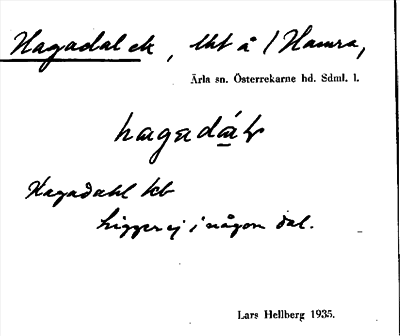 Hagadal ek, lht å /Hamra,
Ärla sn. Österrekarne hd. Sdml. l.
hagadáɫ
Hagadahl kb
Ligger ej i någon dal.
Lars Hellberg 1935.